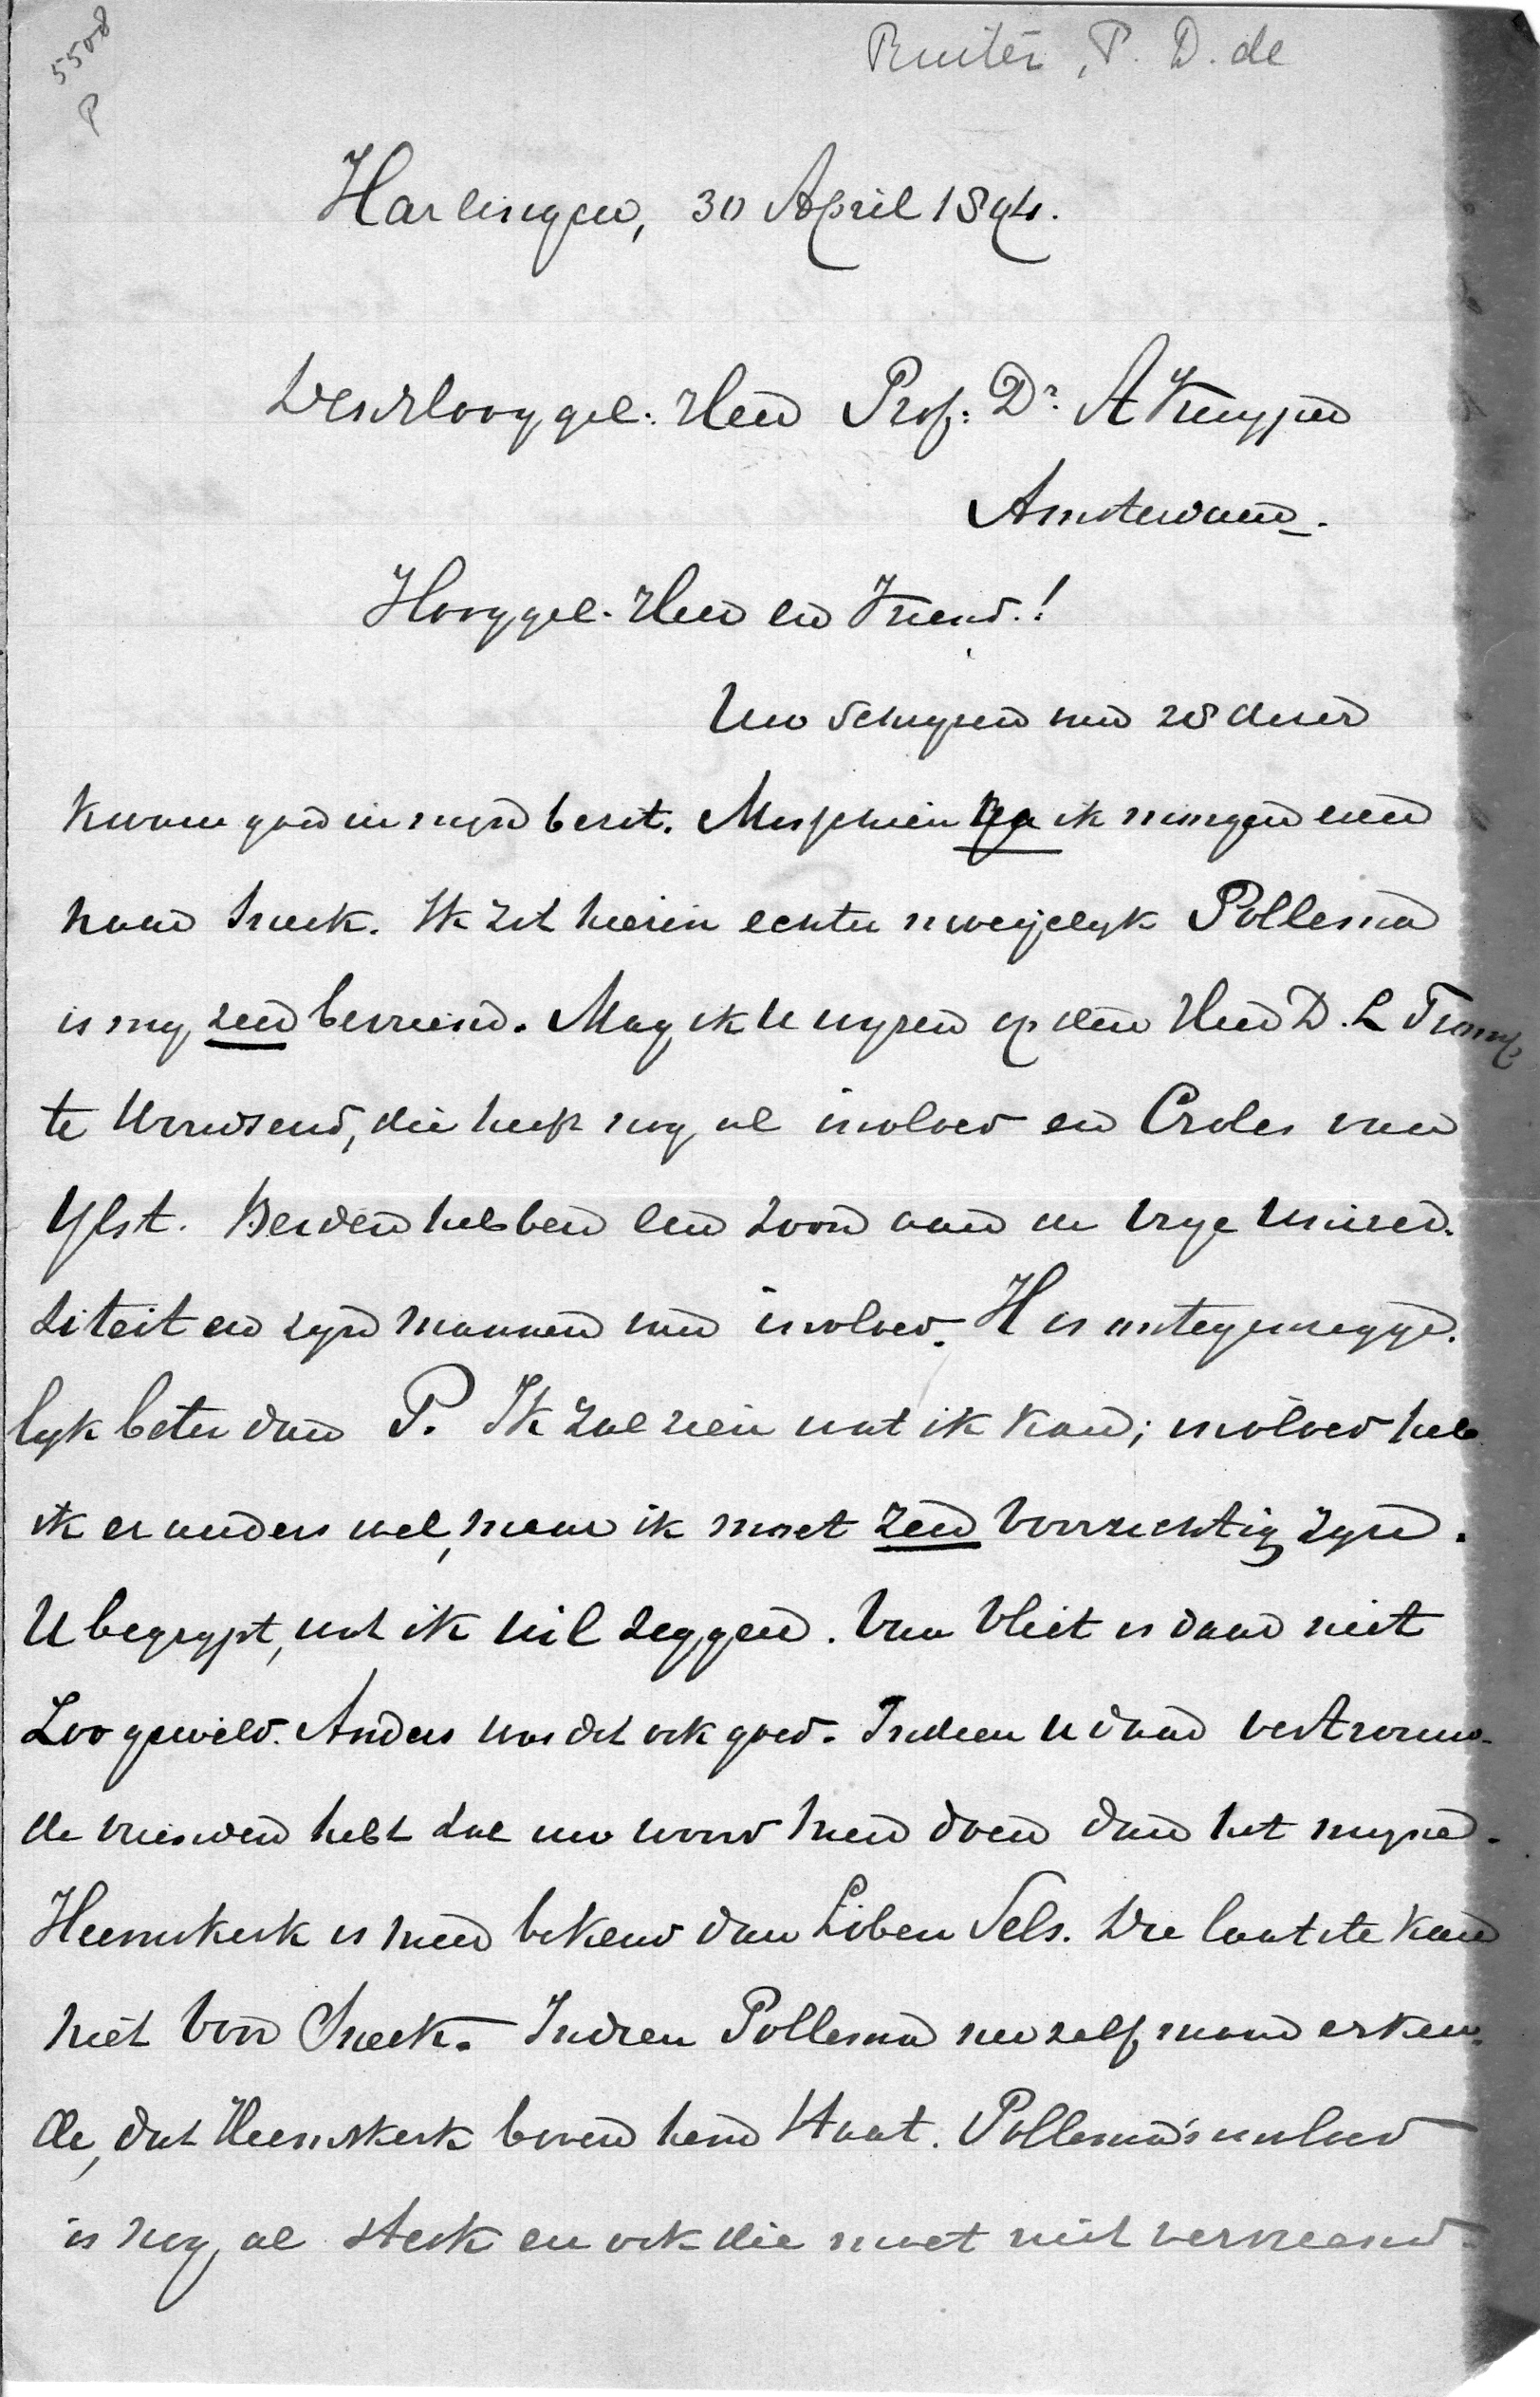 5508
P
Ruiter, P. D. de
Harlingen, 30 April 1894.
WelEdHooggel. Heer Prof: Dr A Kuyper
Amsterdam.
Hooggel. Heer en Vriend!
Uw schrijven van 28 dezer
kwam goed in mijn bezit. Misschien ga ik morgen even
naar Sneek. Ik zit hierin echter moeijelyk Pollema
is my zeer bevriend. Mag ik U wyzen op den Heer D. L Tromp
te Woudsend, die heeft nog al invloed en Croles van
Ylst. Beiden hebben een zoon aan de Vrye Univer-
siteit en zyn mannen van invloed. H is ontegenzegge-
lyk beter dan P. Ik zal zien wat ik kan; invloed heb
ik er anders wel, maar ik moet zeer voorzichtig zyn.
U begrypt, wat ik wil zeggen. Van Vliet is daar niet
zoo gewild. Anders was dit ook goed. Indien u daar vertrouw-
de vrienden hebt zal uw woord meer doen dan het myne.
Heemskerk is meer bekend dan Loben Sels. Die laatste kan
niet voor Sneek. Indien Pollema nu zelf maar erken-
de, dat Heemskerk boven hem staat. Pollema's invloed
is nog al sterk en ook die moet niet vervreemd